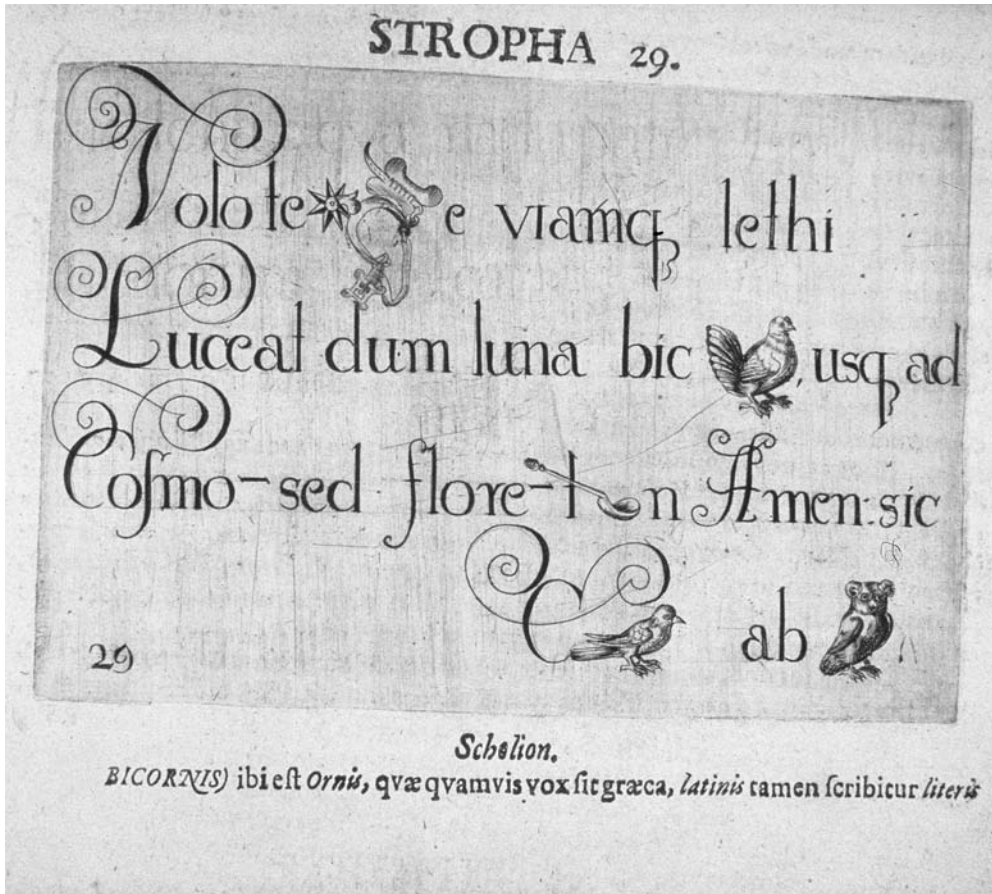 STROPHA 29.
Nolo te e viamq; lethi
Luceat dum luna bic , usq; ad
Coſmo- sed flore- t n Amen: sic
C ab
29
Scholion.
BICORNIS) ibi eſt Ornis, qvæ qvamvis vox ſit græca, latinis tamen ſcribitur literis